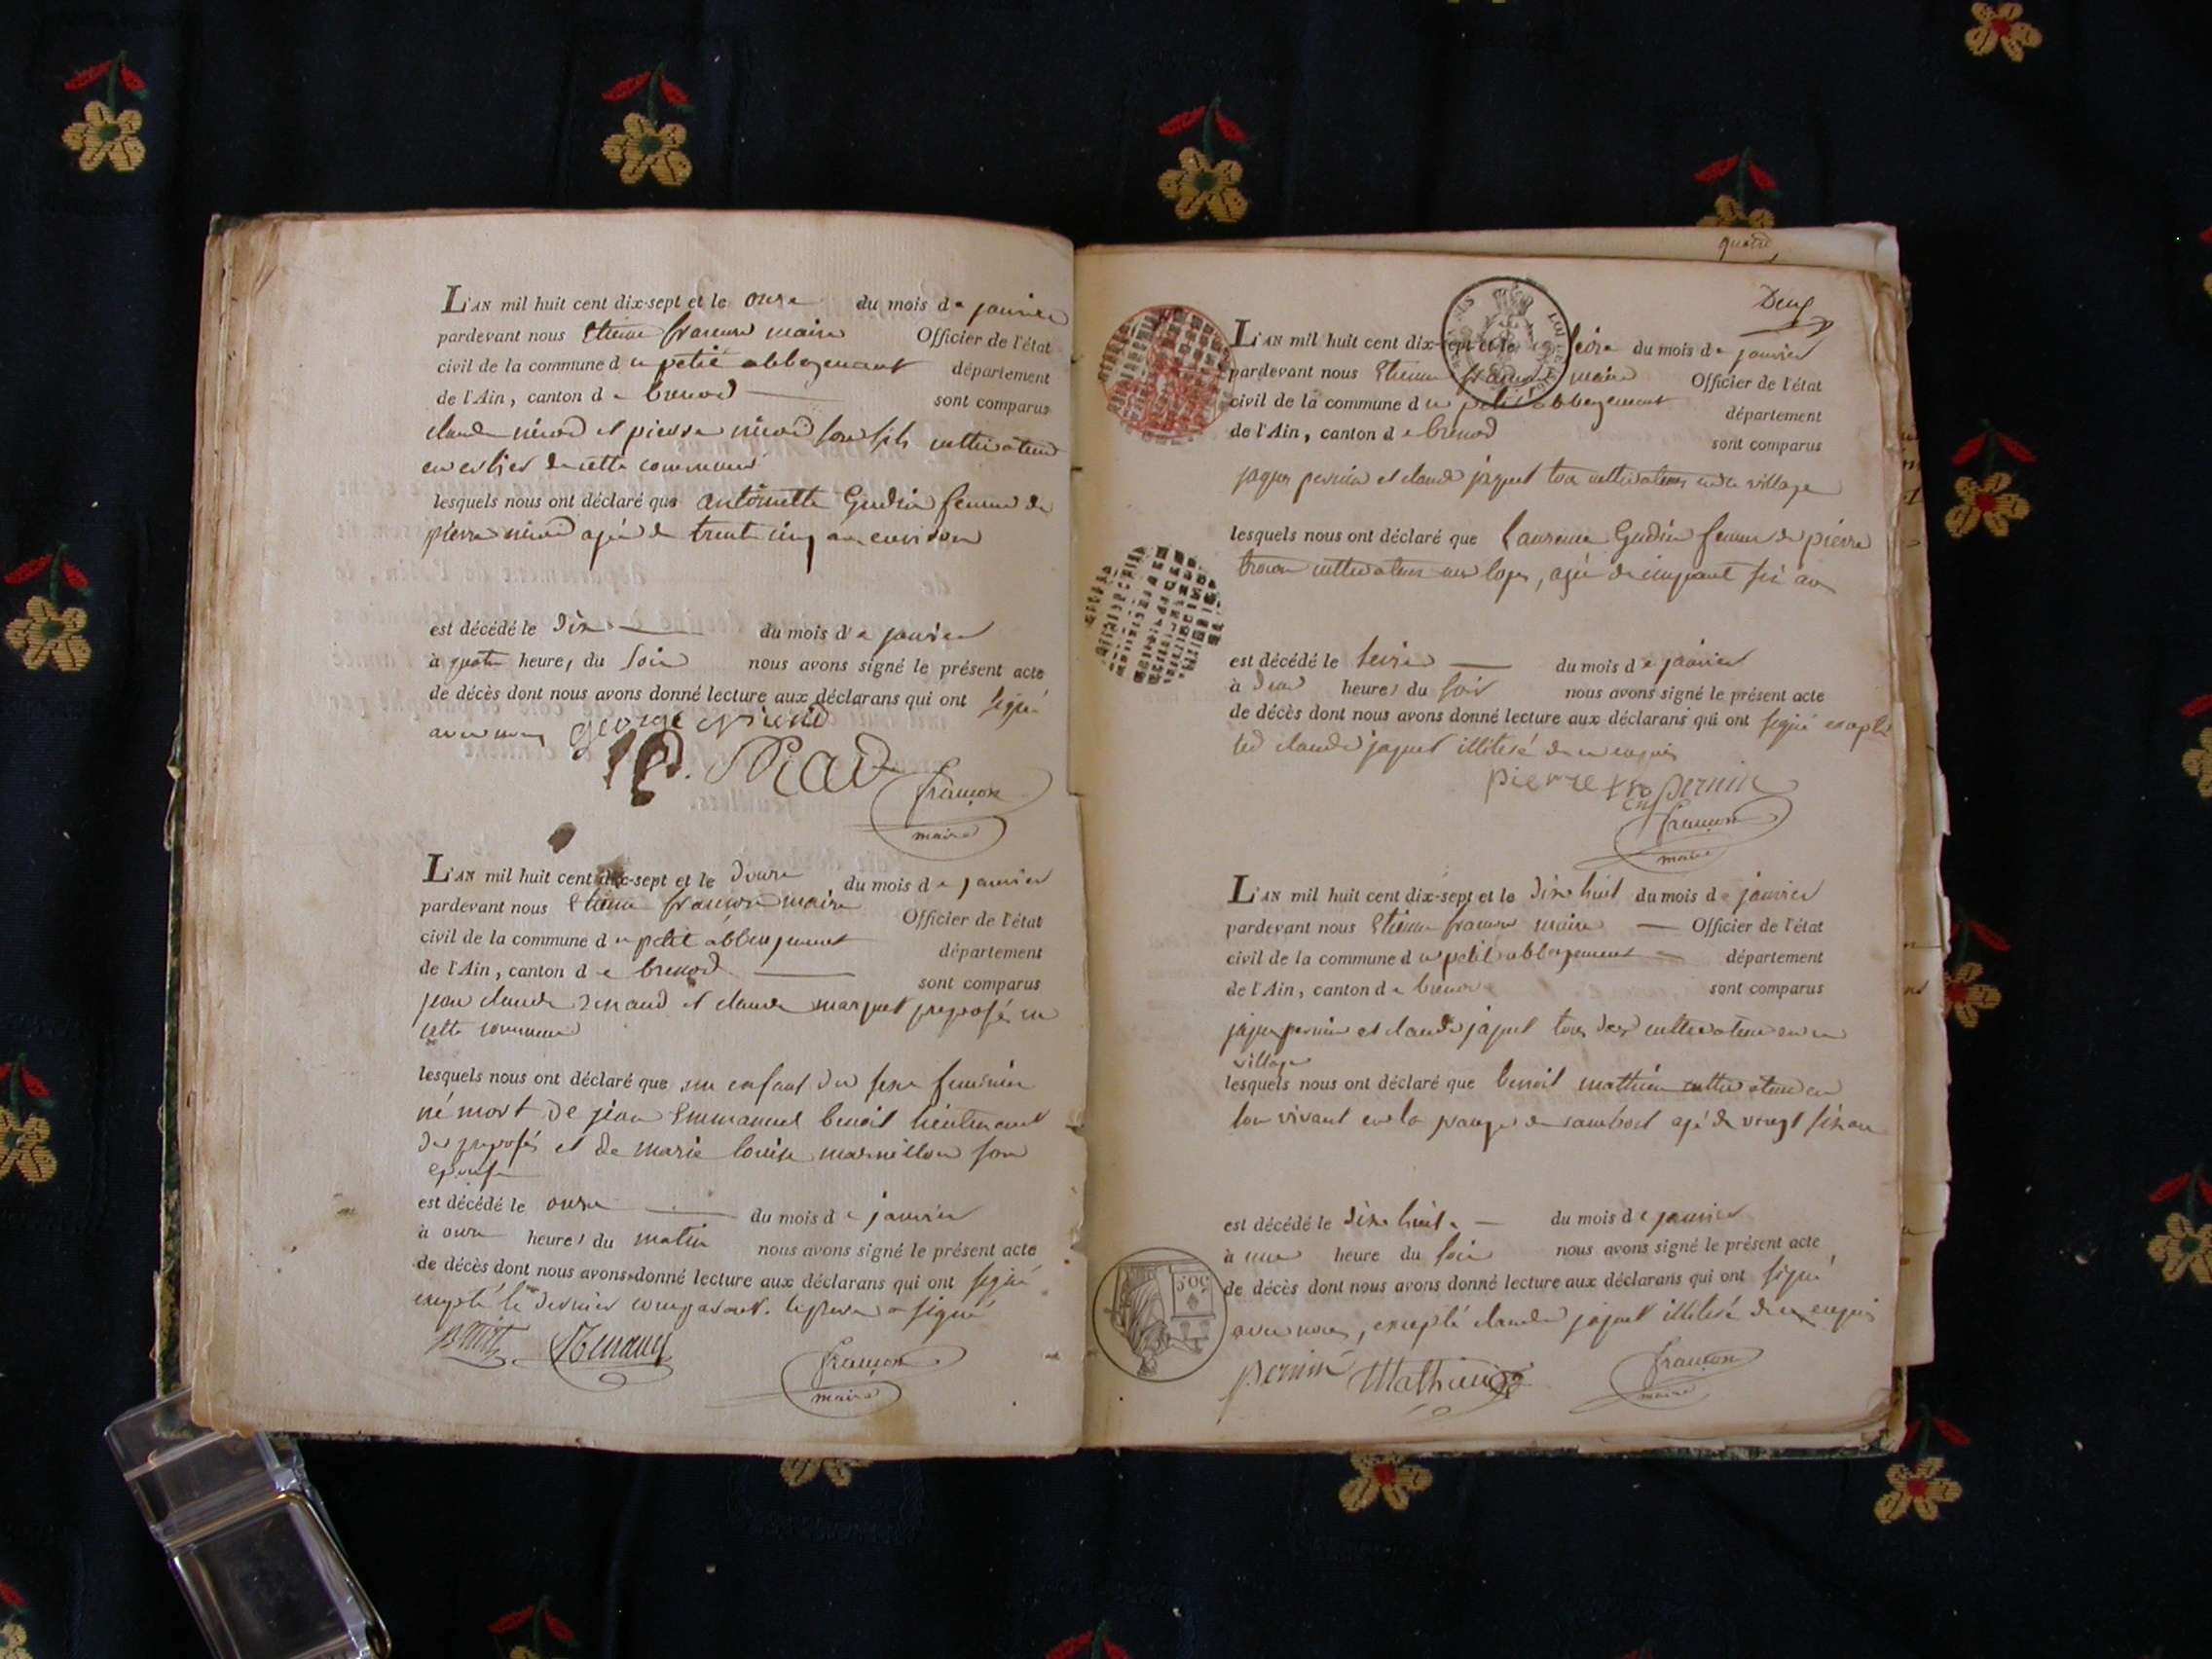 L'AN mil huit cent dix-sept et le onze du mois de janvier
pardevant nous Etienne françon maire Officier de l'état
civil de la commune du petit abbergement département
de l'Ain, canton de brenod sont comparus
claude niaud et pierre niaud son fils cultivateurs
de cette commune
lesquels nous ont déclaré que antoinette Gudin femme de
pierre niaud agée de trente cinq ans environ
est décédé le dix du mois de janvier
à quatre heures du soir nous avons signé le présent acte
de décès dont nous avons donné lecture aux déclarans qui ont signé
avec nous george
françon
maire
L'AN mil huit cent dix-sept et le douze du mois de janvier
pardevant nous Etienne françon maire Officier de l'état
civil de la commune du petit abbergement département
de l'Ain, canton de brenod sont comparus
jean claude renaud et claude marquet preposés en
cette commune
lesquels nous ont déclaré que un enfant du sexe feminin
né mort de jean Emmanuel benoit lieutenant
des preposés et de marie louise marmillon son
epouse
est décédé le onze du mois de janvier
à onze heures du matin nous avons signé le présent acte
de décès dont nous avons donné lecture aux déclarans qui ont signé
excepté le dernier comparant. le pere a signé
Renaud
françon
maire
Deux
L'AN mil huit cent dix-sept et le seize du mois de janvier
pardevant nous Etienne françon maire Officier de l'état
civil de la commune du petit abbergement département
de l'Ain, canton de brenod sont comparus
jaques pernin et claude jaquet tous cultivateurs en ce village
lesquels nous ont déclaré que laurence Gudin femme de pierre
cultivateur agée de cinquante six ans
est décédé le seize du mois de janvier
à deux heures du soir nous avons signé le présent acte
de décès dont nous avons donné lecture aux déclarans qui ont signé excepté
led claude jaquet illiteré de ce enquis
pierre pernin
françon
maire
L'AN mil huit cent dix-sept et le dix huit du mois de janvier
pardevant nous Etienne françon maire Officier de l'état
civil de la commune du petit abbergement département
de l'Ain, canton de brenod sont comparus
jaques pernin et claude jaquet tous deux cultivateurs en ce
village
lesquels nous ont déclaré que benoit mathieu cultivateur en
son vivant en la grange de agé de vingt six ans
est décédé le dix huit du mois de janvier
à une heure du soir nous avons signé le présent acte
de décès dont nous avons donné lecture aux déclarans qui ont signé
avec nous, excepté claude jaquet illiteré de ce enquis
pernin Mathieu
françon
maire